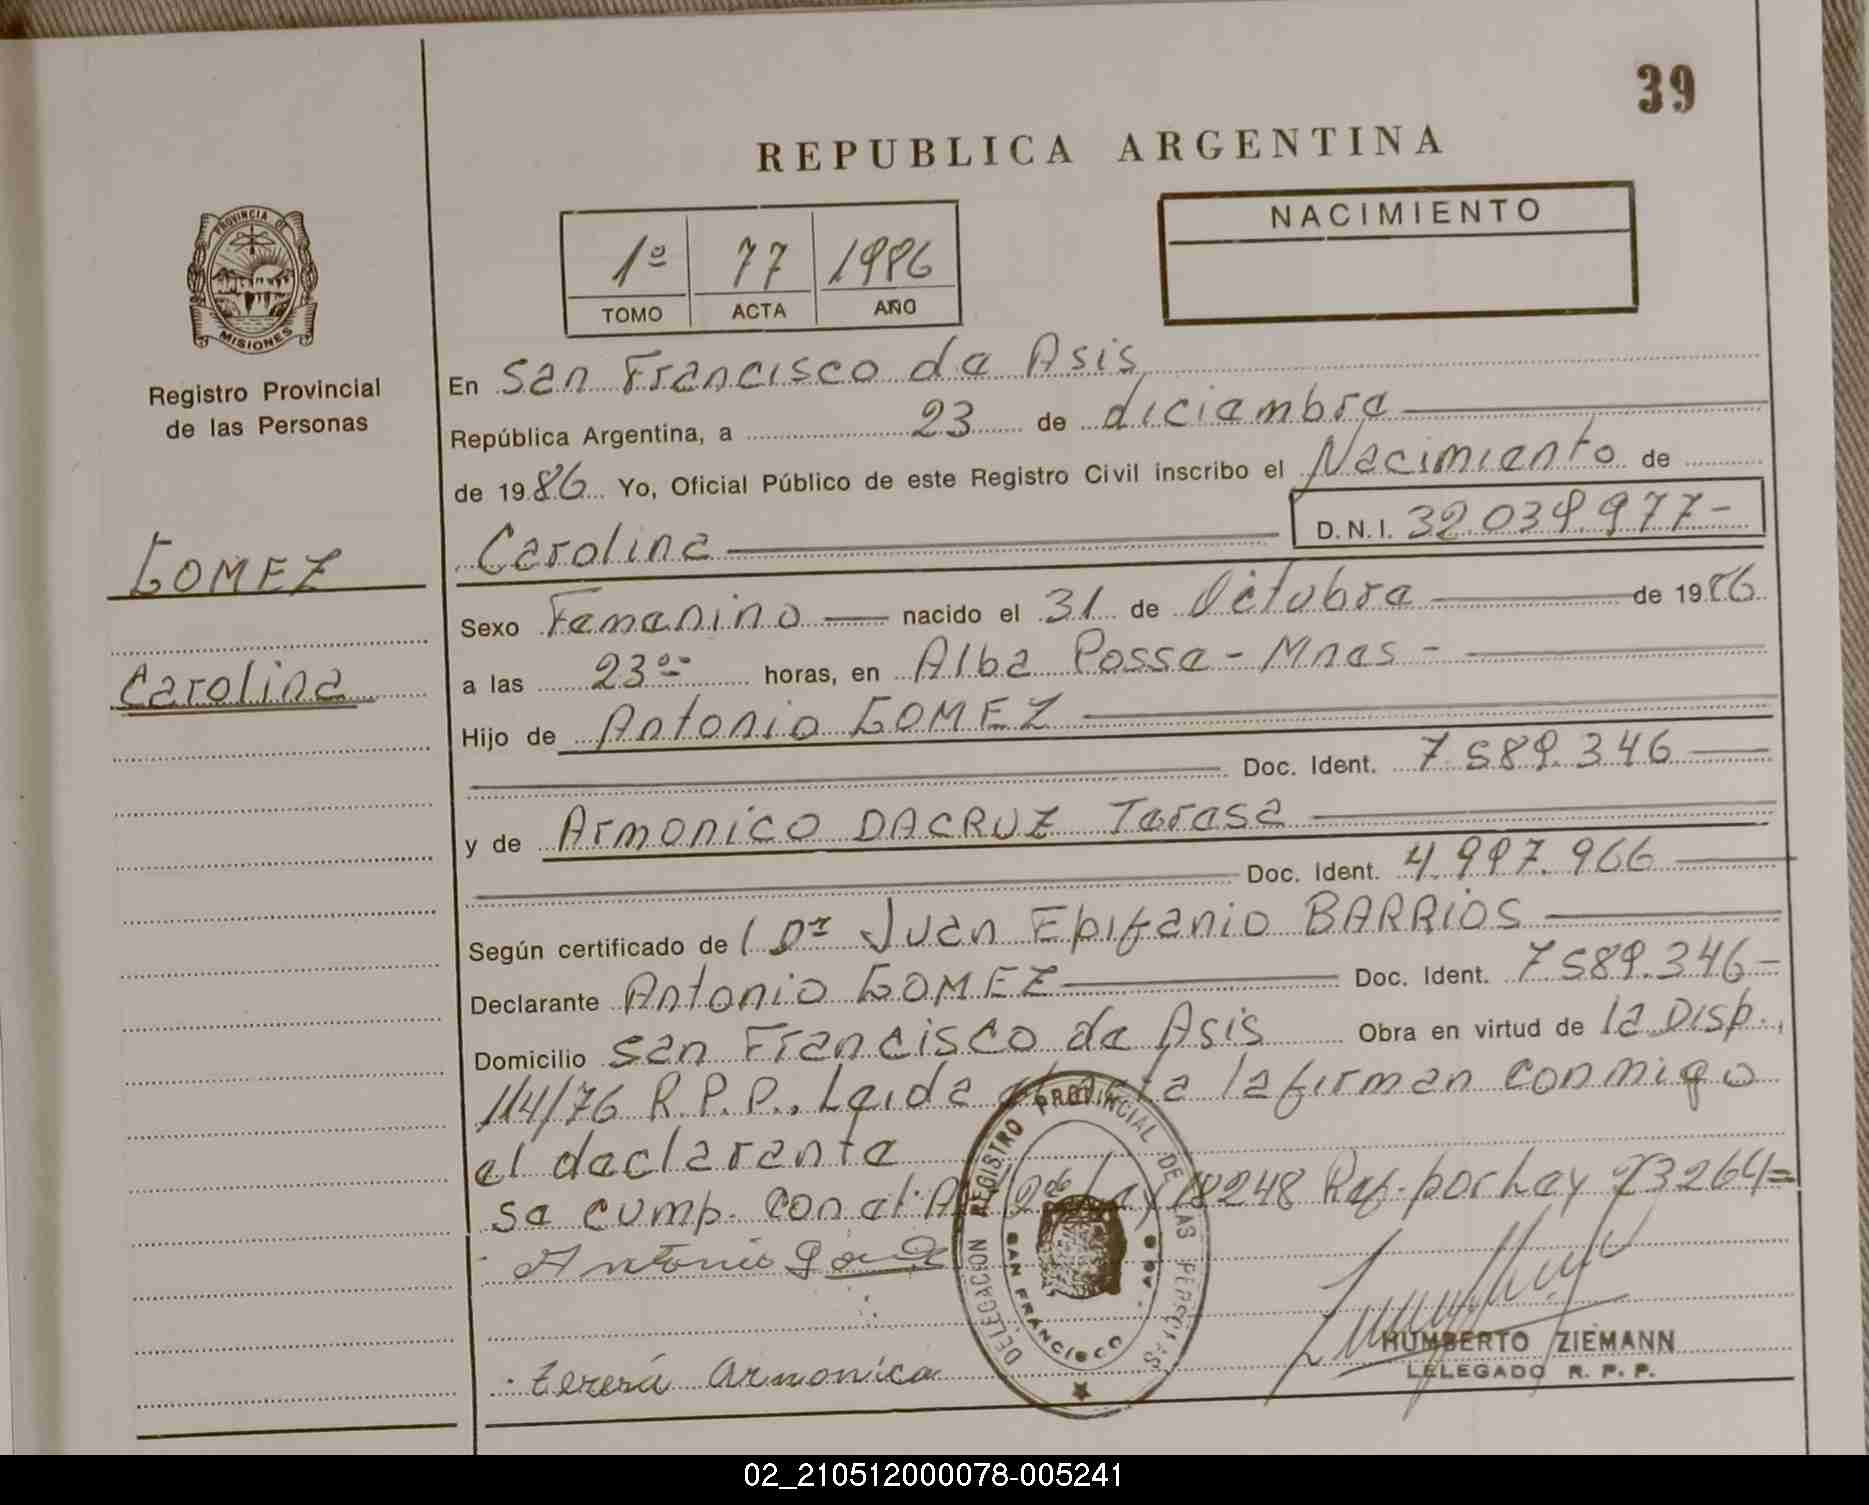 39
REPUBLICA ARGENTINA
PROVINCIA DE
MISIONES
Registro Provincial
de las Personas
GOMEZ
Carolina
1º 77 1986
TOMO ACTA AÑO
NACIMIENTO
En San Francisco de Asis
República Argentina, a 23 de diciembre
de 1986 Yo, Oficial Público de este Registro Civil inscribo el Nacimiento de
Carolina D.N.I. 32.039.977-
Sexo Femenino nacido el 31 de Octubre de 1986
a las 23°- horas, en Alba Posse - Mnes -
Hijo de Antonio GOMEZ
Doc. Ident. 7.589.346
y de Armonico DACRUZ Teresa
Doc. Ident. 4.997.966
Según certificado de Dr Juan Epifanio BARRIOS
Declarante Antonio GOMEZ Doc. Ident. 7.589.346-
Domicilio San Francisco de Asis Obra en virtud de la Disp.
1/4/76 R.P.P., Leida el acta la firman conmigo
el declarante
se cump. con el 2do Ley 18248 Ref. por Ley 23264=
Antonio
tererá Armonica
DELEGACION REGISTRO PROVINCIAL DE LAS PERSONAS
SAN FRANCISCO
HUMBERTO ZIEMANN
LELEGADO R. P. P.
02_210512000078-005241